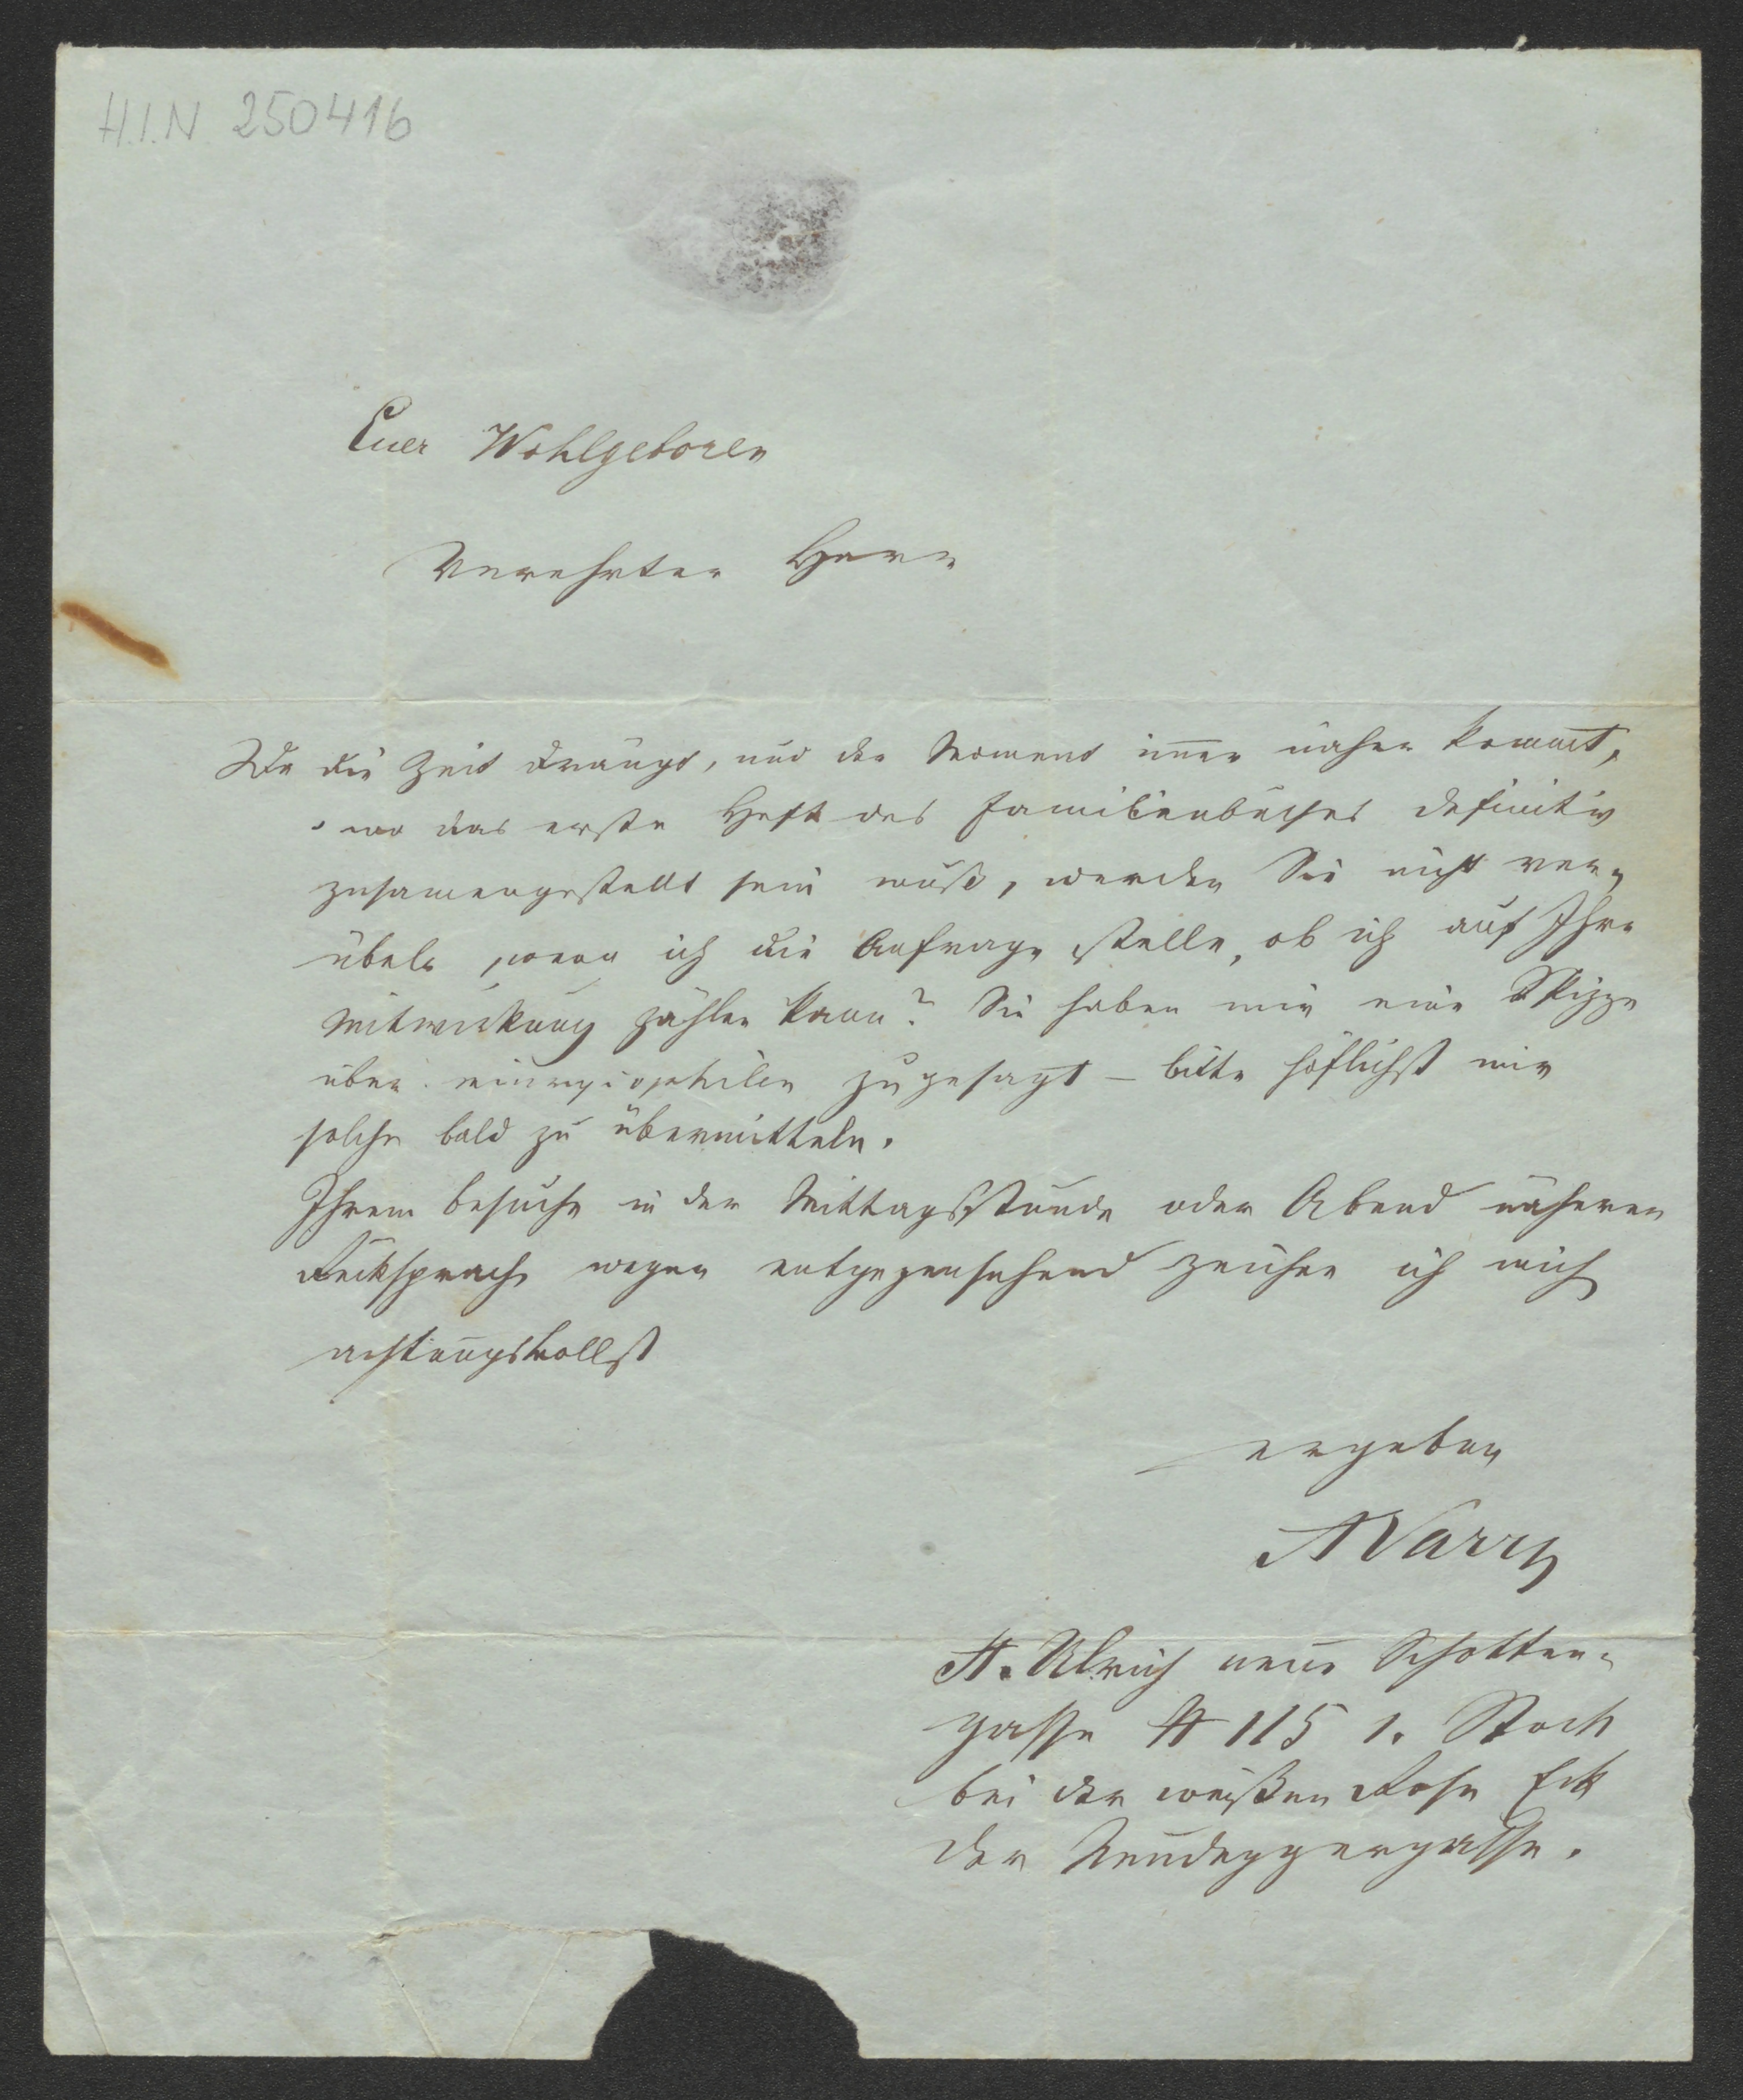 H.I.N. 250416
Euer Wohlgeboren
Verehrter Herr
Da die Zeit drängt, und der Moment im̅er näher kom̅t,
wo das erste Heft des Familienbuches definitiv
zusamengestellt sein muß, werden Sie nicht ver-
übeln, wenn ich die Anfrage stelle, ob ich auf Ihre
Mitwirkung zählen kann? Sie haben mir eine Skizze
über zugesagt – bitte höflichst mir
solche bald zu übermitteln.
Ihrem Besuche in der Mittagsstunde oder Abend näherer
Rücksprache wegen entgegensehend zeichne ich mich
achtungsvollst
ergeben
AVarry
St. Ulrich neue Schotten-
gasse # 115 1. Stock
bei der weißen Rose Eck
der Neudeggergasse.